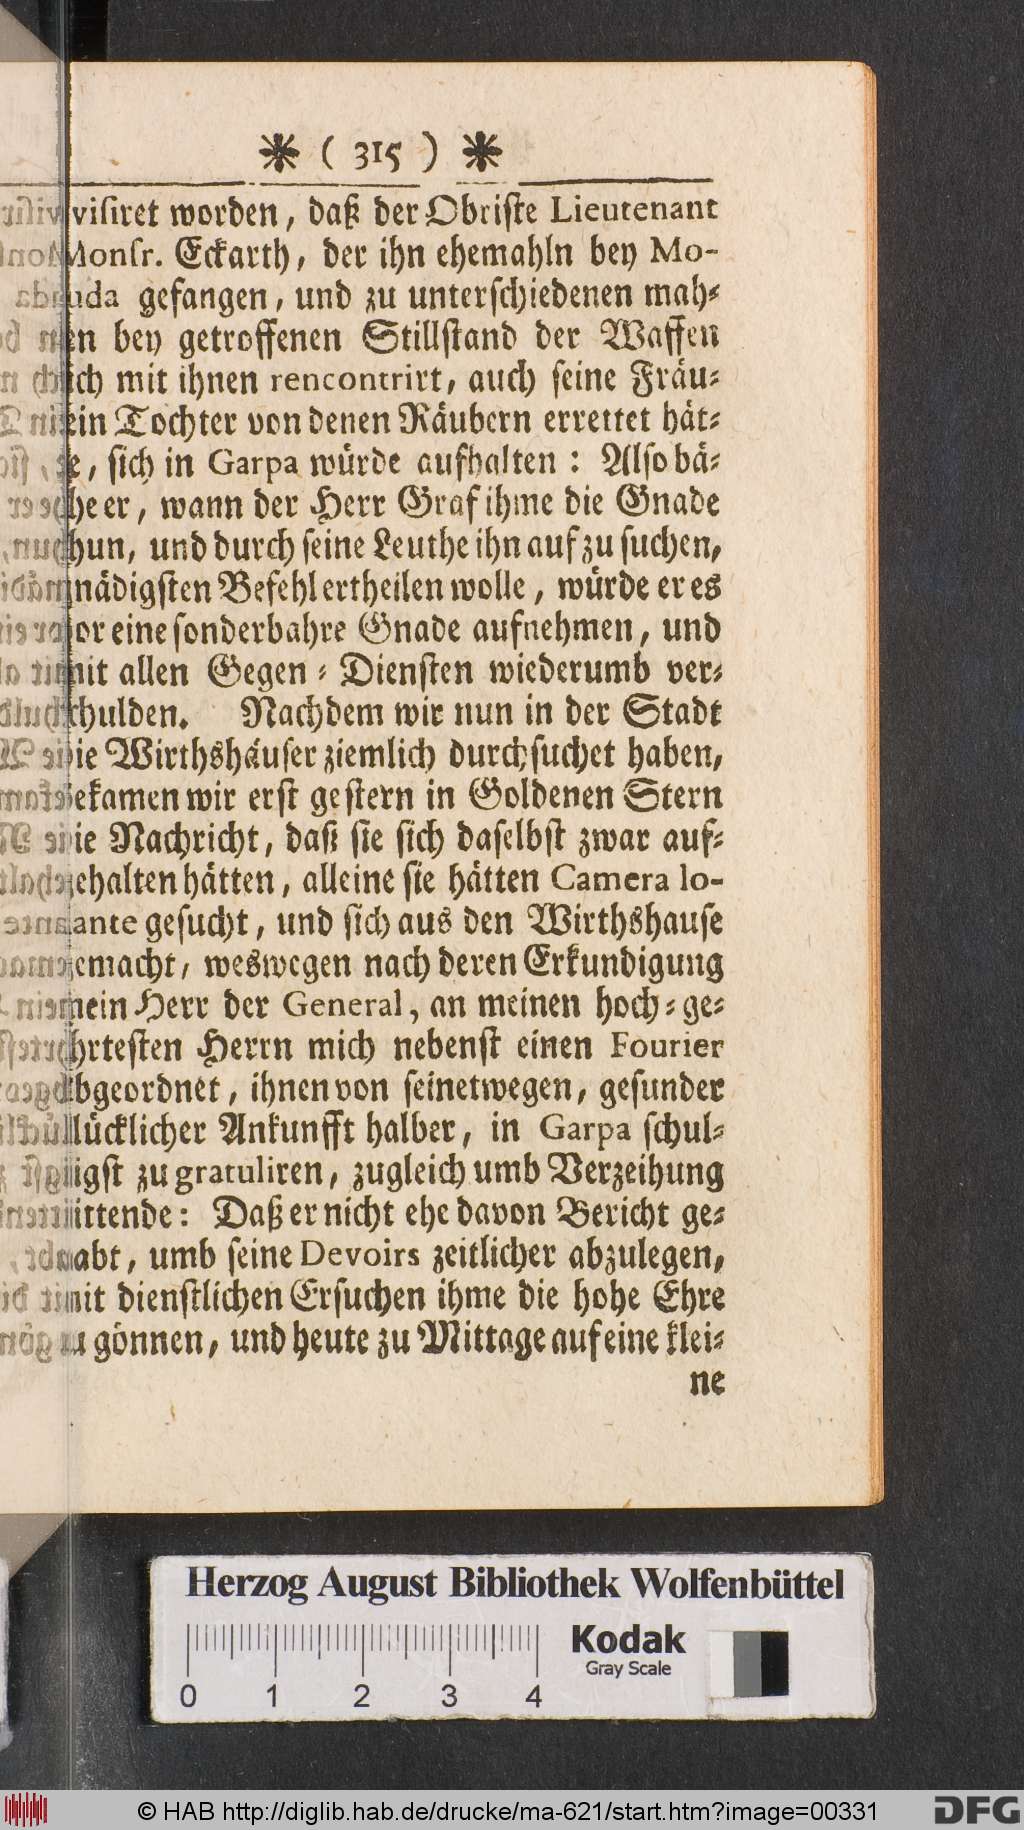 ❋ ( 315 ) ❋
visiret worden, daß der Obriste Lieutenant
Monsr. Eckarth, der ihn ehemahln bey Mo-
gefangen, und zu unterschiedenen mah-
len bey getroffenen Stillstand der Waffen
sich mit ihnen rencontrirt, auch seine Fräu-
lein Tochter von denen Räubern errettet hät-
te, sich in Garpa würde aufhalten: Also bä-
the er, wann der Herr Graf ihme die Gnade
thun, und durch seine Leuthe ihn auf zu suchen,
gnädigsten Befehl ertheilen wolle, würde er es
vor eine sonderbahre Gnade aufnehmen, und
mit allen Gegen-Diensten wiederumb ver-
schulden. Nachdem wir nun in der Stadt
die Wirthshäuser ziemlich durchsuchet haben,
bekamen wir erst gestern in Goldenen Stern
die Nachricht, daß sie sich daselbst zwar auf-
gehalten hätten, alleine sie hätten Camera lo-
cante gesucht, und sich aus den Wirthshause
gemacht, weswegen nach deren Erkundigung
mein Herr der General, an meinen hoch-ge-
ehrtesten Herrn mich nebenst einen Fourier
abgeordnet, ihnen von seinetwegen, gesunder
glücklicher Ankunfft halber, in Garpa schul-
digst zu gratuliren, zugleich umb Verzeihung
bittende: Daß er nicht ehe davon Bericht ge-
habt, umb seine Devoirs zeitlicher abzulegen,
mit dienstlichen Ersuchen ihme die hohe Ehre
zu gönnen, und heute zu Mittage auf eine klei-
ne
Herzog August Bibliothek Wolfenbüttel
Kodak
Gray Scale
0 1 2 3 4
© HAB http://diglib.hab.de/drucke/ma-621/start.htm?image=00331
DFG